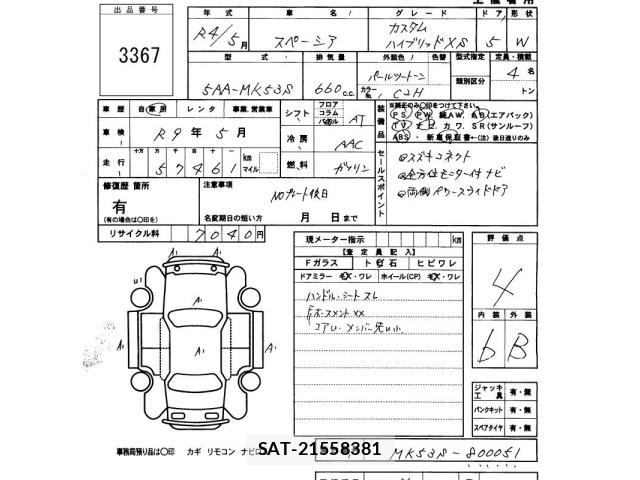 出品番号
3367
年式
車名
グレード
ドア 形状
R4/5月
スペーシア
カスタム
ハイブリッドXS
5
W
型式
排気量
外装色 / 色替
型式指定
定員・積載
5AA-MK53S
660 c.c.
パールツートーン
カラーNo. C2H
類別区分
4名
トン
車歴 自家用 レンタ 事業、営業車
車検 R9年5月
走行 十万 万 千 百 十 一
57461 km マイル
シフト フロア コラム パネル AT
冷房 AAC
燃料 ガソリン
装備品
※純正のみ〇印をつけて下さい。
PS PW 純AW. AB(エアバック)
TV ナビ. カワ. SR(サンルーフ)
ABS ・新車保証書←(注)後日送りのみ
セールスポイント
スズキコネクト
全方位モニター付ナビ
両側パワースライドドア
修復歴 箇所
有
(有の場合は〇印を)
注意事項
NOプレート後日
名変期日の短い方 月 日まで
リサイクル料 7040円
現メーター指示 km
【査定員記入】
Fガラス トビ石 ヒビワレ
ドアミラー キズ・ワレ ホイール(CP) キズ・ワレ
ハンドル、シートスレ
評価点
4
内装 外装
b B
A1
A1
U1
A1
A1
A1
A1
ジャッキ 工具 有・無
パンクキット 有・無
スペアタイヤ 有・無
事務局預り品は〇印 カギ リモコン ナビ
SAT-21558381
MK53S-800051